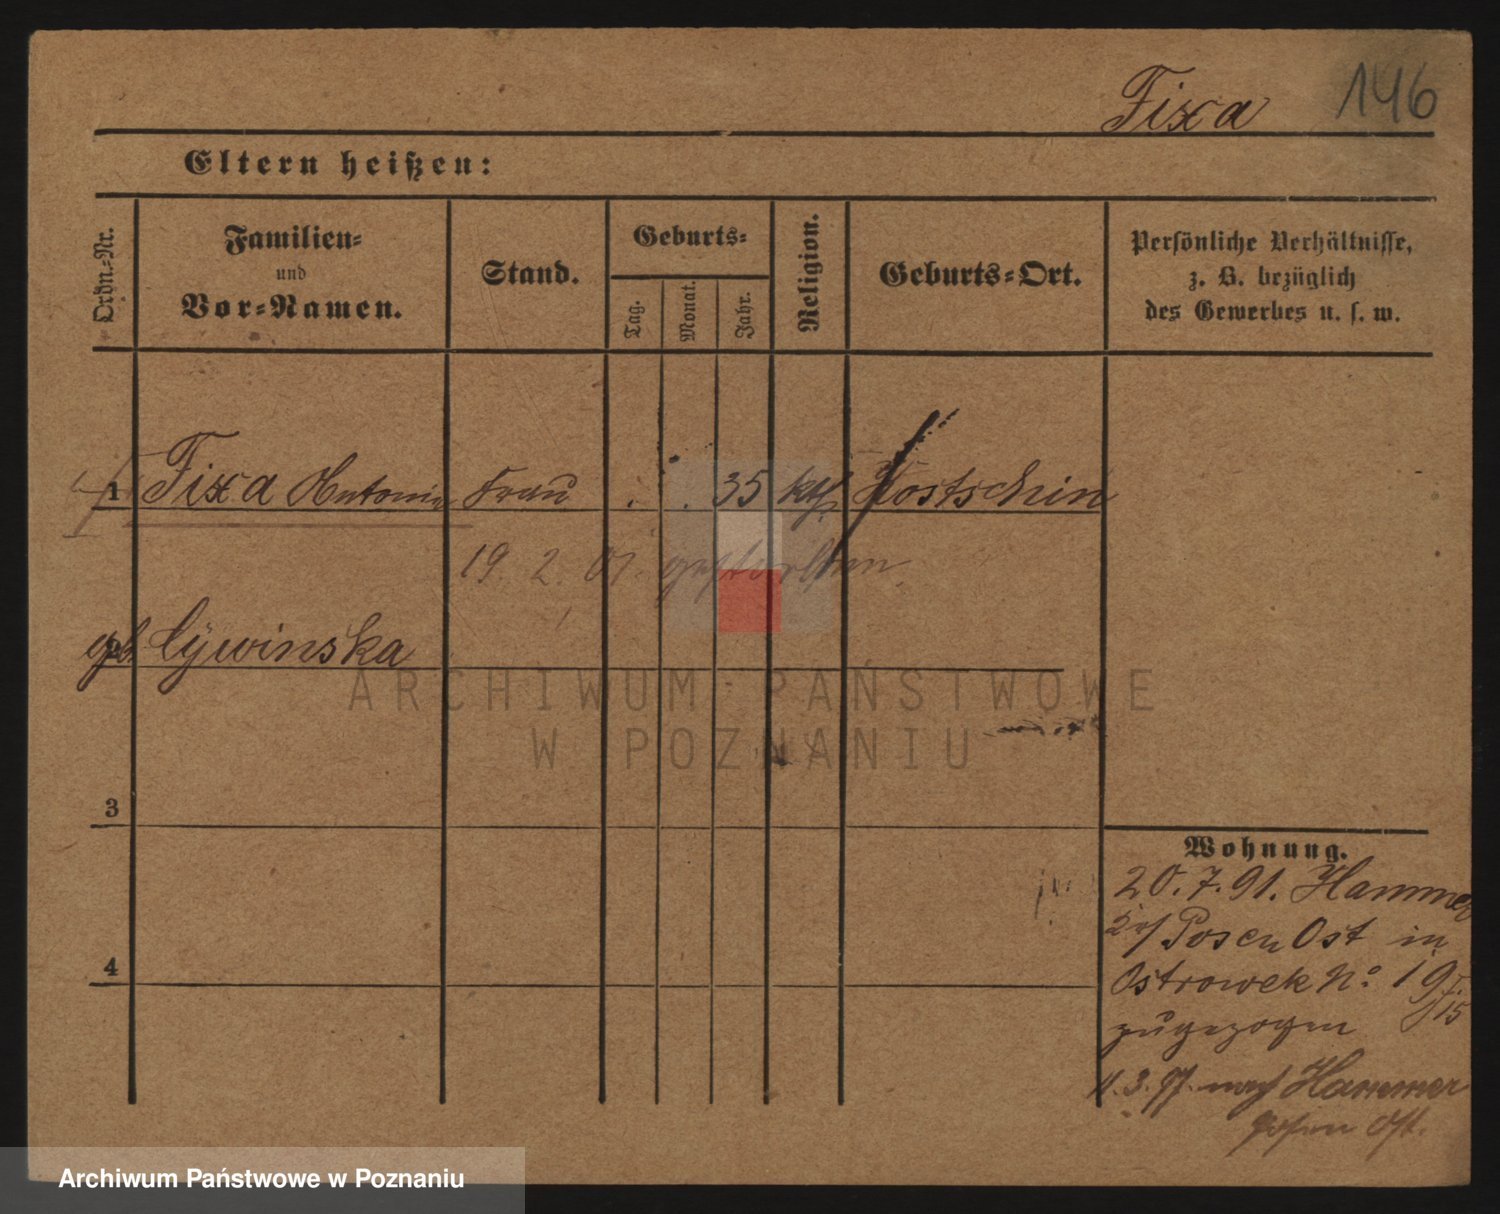 Fixa 146
Eltern heißen:
Ordn.-Nr.
Familien-
und
Vor-Namen.
Stand.
Geburts-
Tag.
Monat.
Jahr.
Religion.
Geburts-Ort.
Persönliche Verhältnisse,
z. B. bezüglich
des Gewerbes u. s. w.
1 Fixa Antonie Frau . . 35 kth Kostschin
19. 2. 01. gestorben
2 gb. Cÿwinska
ARCHIWUM PAŃSTWOWE
W POZNANIU
3
4
Wohnung.
20. 7. 91. Hammer
Posen Ost in
Ostrowek No 19
zugezogen
11. 3. 97. nach Hammer
Posen Ost.
Archiwum Państwowe w Poznaniu